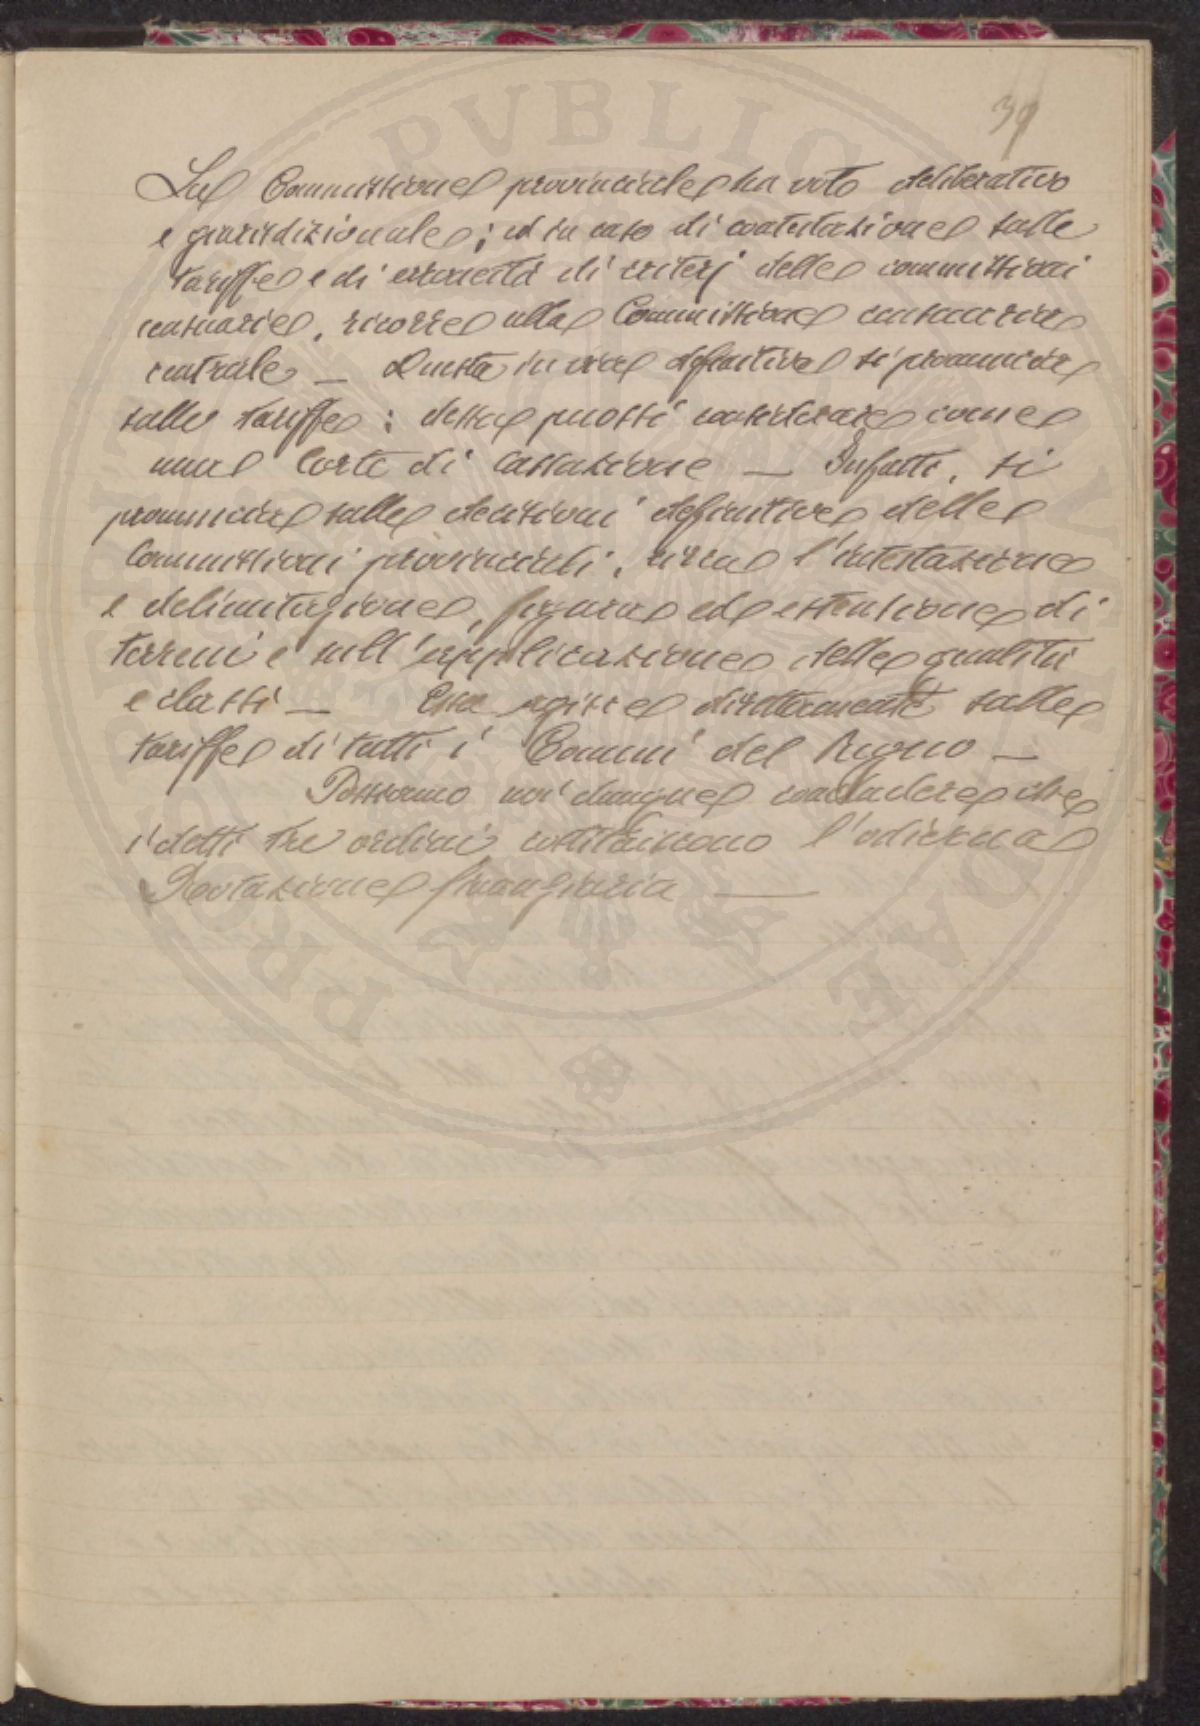 39
La Commissione provinciale ha voto deliberativo
e giurisdizionale; ed in caso di contestazione sulle
tariffe e di erroneità di criterj delle commissioni
censuarie, ricorre alla Commissione censuaria
centrale — Questa in via definitiva si pronuncia
sulle tariffe: dessa puossi considerare come
una Corte di Cassazione — Infatti, si
pronuncia sulle decisioni definitive delle
Commissioni provinciali, circa l'intestazione
e delimitazione, figura ed estensione di
terreni e sull'applicazione delle qualità
e classi — Essa agisce direttamente sulle
tariffe di tutti i Comuni del Regno —
Possiamo noi dunque concludere che
i detti tre ordini costituiscono l'odierna
finanziaria —